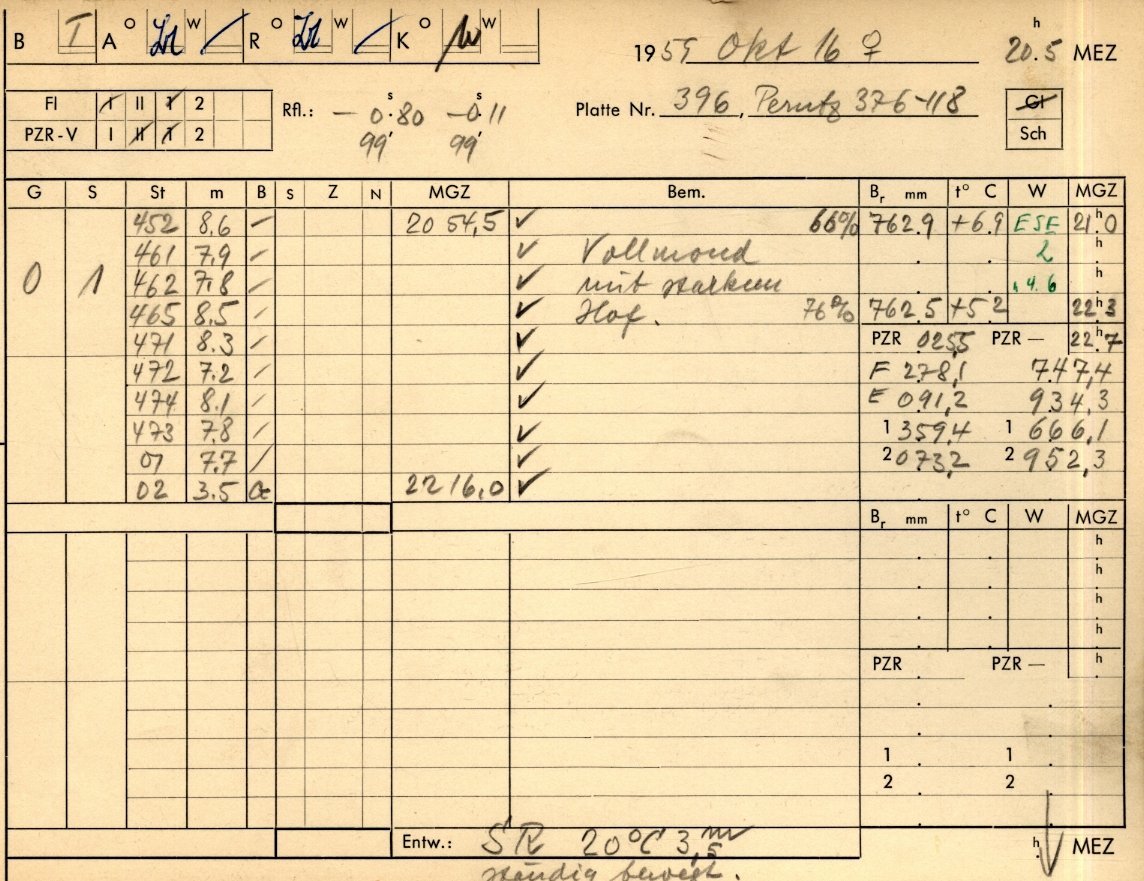 B I A o W R o W K o W
1959 Okt 16 ♀ 20.5 h MEZ
Fl I II 1 2
PZR-V I II 1 2
Rfl.: − 0.80 s −0.11 s
99' 99'
Platte Nr. 396, Perutz 376-118
Gl
Sch
G S St m B S Z N MGZ Bem. Br mm t° C W MGZ
452 8.6 – 20 54,5 ✓ 66% 762.9 +6.9 ESE 21h.0
461 7.9 – ✓ Vollmond 2 h
0 1 462 7.8 – ✓ mit starkem 4.6 h
465 8.5 – ✓ Hof. 76% 762.5 +5 2 22h3
471 8.3 – ✓ PZR 0255 PZR − 22h.7
472 7.2 – ✓ F 278,1 747,4
474 8.1 – ✓ E 091,2 934,3
473 7.8 – ✓ 1 359,4 1 666,1
01 7.7 / ✓ 2 073,2 2 952,3
02 3.5 22 16,0 ✓
Br mm t° C W MGZ
h
h
h
h
PZR PZR − h
1 1
2 2
Entw.: SR 20°C 3,5 m h MEZ
ständig bewegt.